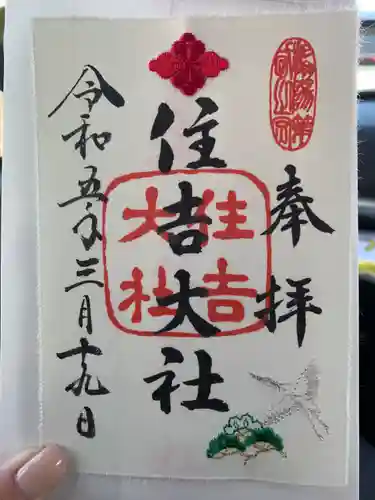 奉拝
住吉大社
住吉
大社
令和五年三月十九日